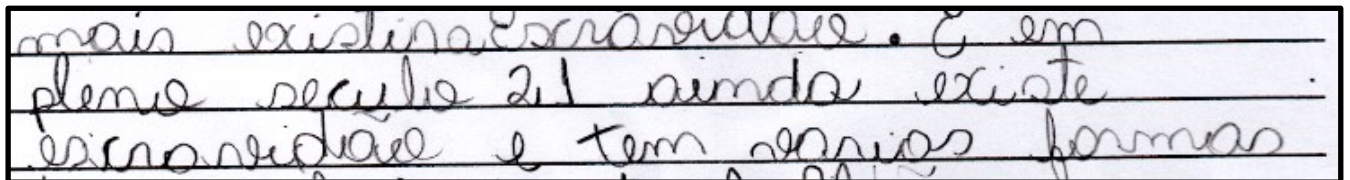 mais existira Escravidão. E em
pleno seculo 21 ainda existe
escravidão e tem varias formas